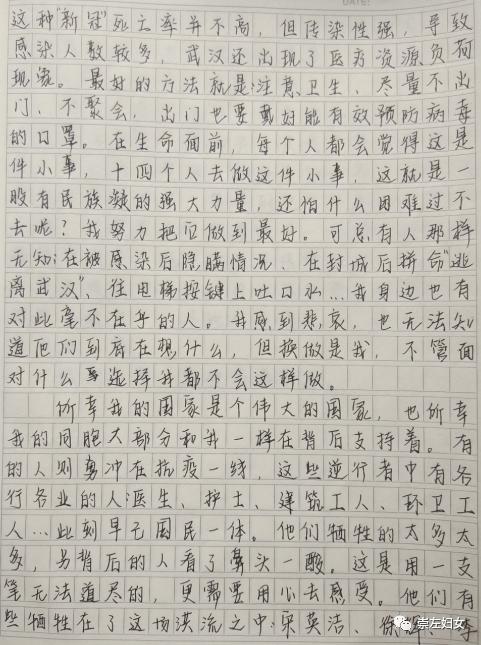 这种"新冠"死亡率并不高，但传染性强，导致
感染人数较多，武汉还出现了医疗资源负荷
现象。最好的方法就是注意卫生、尽量不出
门、不聚会，出门也要戴好能有效预防病毒
的口罩。在生命面前，每个人都会觉得这是
件小事，十四个人去做这件小事，这就是一
股有民族凝的强大力量，还怕什么困难过不
去呢？我努力把它做到最好。可总有人那样
无知：在被感染后隐瞒情况、在封城后拼命"逃
离武汉"、往电梯按键上吐口水…我身边也有
对此毫不在乎的人。我感到悲哀，也无法知
道他们到底在想什么，但换做是我，不管面
对什么事选择我都不会这样做。
所幸我的国家是个伟大的国家，也所幸
我的同胞大部分和我一样在背后支持着。有
的人则勇冲在抗疫一线，这些逆行者中有各
行各业的人：医生、护士、建筑工人、环卫工
人…此刻早已国民一体。他们牺牲的太多太
多，另背后的人看了鼻头一酸。这是用一支
笔无法道尽的，更需要用心去感受。他们有
些牺牲在了这场洪流之中：宋英洁、徐辉、李
崇左妇女